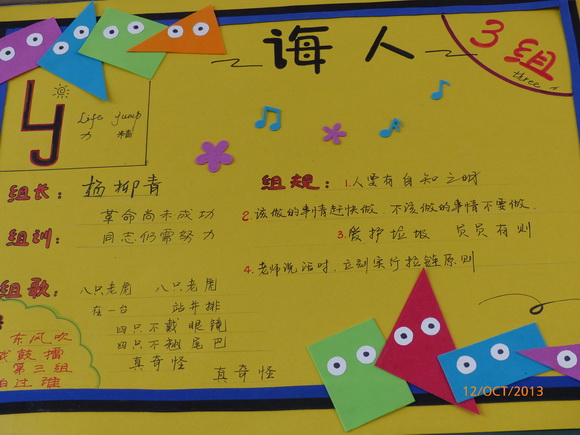 诲人
3组
three
y
life jump
力 精
组长： 杨柳青
组训： 革命尚未成功
同志仍需努力
组歌： 八只老虎 八只老虎
在一台 站并排
四只不戴眼镜
四只不翘尾巴
真奇怪 真奇怪
组规： 1.人要有自知之明
2 该做的事情赶快做. 不该做的事情不要做.
3.爱护垃圾 员员有则
4.老师说话时, 立刻实行拉链原则
东风吹
鼓擂
第三组
怕过谁
12/OCT/2013